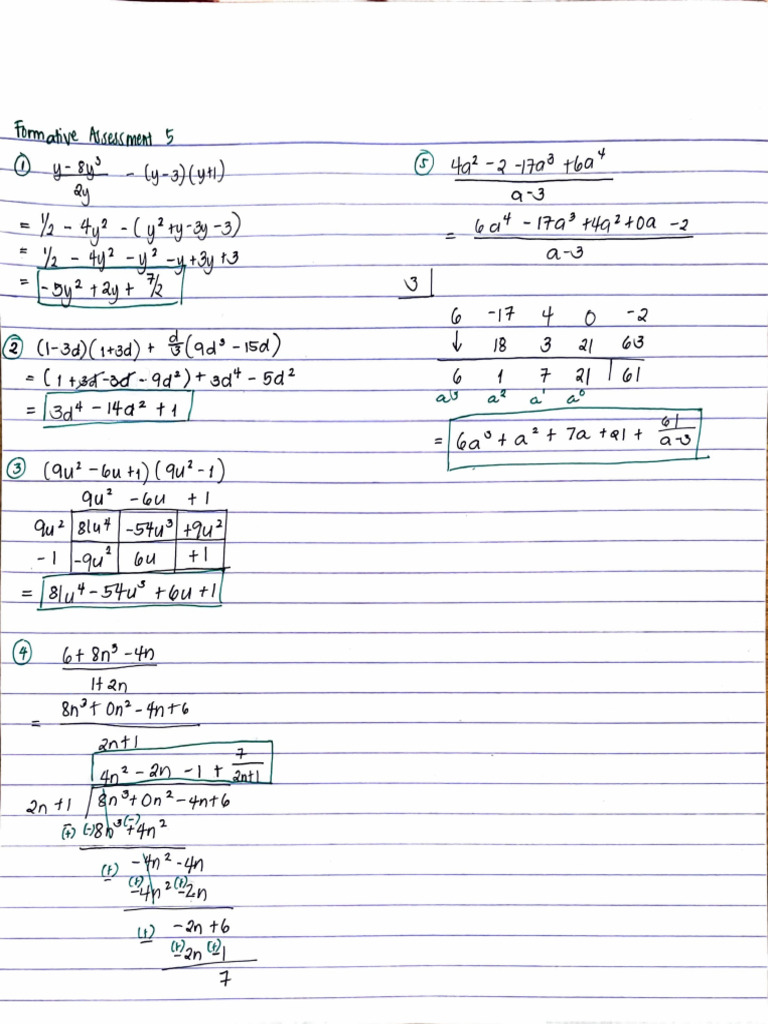 Formative Assessment 5
① (y - 8y³)/2y - (y-3)(y+1)
= 1/2 - 4y² - (y² + y - 3y - 3)
= 1/2 - 4y² - y² - y + 3y + 3
= -5y² + 2y + 7/2
② (1-3d)(1+3d) + d/3 (9d³ - 15d)
= (1 + 3d - 3d - 9d²) + 3d⁴ - 5d²
= 3d⁴ - 14d² + 1
③ (9u² - 6u + 1)(9u² - 1)
9u² - 6u + 1
9u² 81u⁴ -54u³ +9u²
-1 -9u² 6u +1
= 81u⁴ - 54u³ + 6u + 1
④ 6 + 8n³ - 4n
1 + 2n
8n³ + 0n² - 4n + 6
=
2n+1
4n² - 2n - 1 + 7/(2n+1)
2n + 1 8n³ + 0n² - 4n + 6
(+) (-) 8n³ (-) +4n²
(+) -4n² - 4n
(+) -4n² (+) -2n
(+) -2n + 6
(+) -2n (+) -1
7
⑤ 4a² - 2 - 17a³ + 6a⁴
a-3
= 6a⁴ - 17a³ + 4a² + 0a - 2
a-3
3
6 -17 4 0 -2
↓ 18 3 21 63
6 1 7 21 61
a³ a² a¹ a⁰
= 6a³ + a² + 7a + 21 + 61/(a-3)